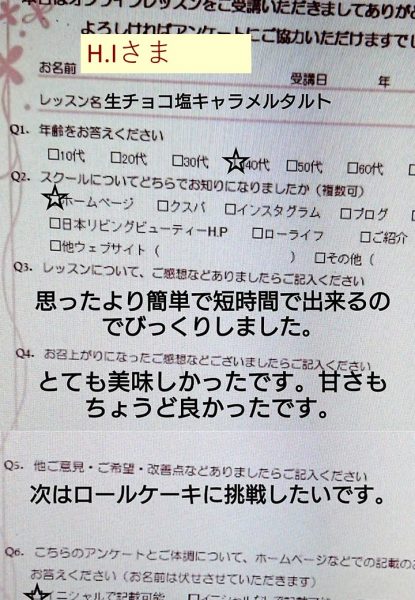 本日はオンラインレッスンをご受講いただきましてありがと
よろしければアンケートにご協力いただけますでし
お名前 H.Iさま
受講日 年
レッスン名 生チョコ塩キャラメルタルト
Q1. 年齢をお答えください
□10代 □20代 □30代 ☆40代 □50代 □60代
Q2. スクールについてどちらでお知りになりましたか（複数可）
☆ホームページ □クスパ □インスタグラム □ブログ
□日本リビングビューティーH.P □ローライフ □ご紹介
□他ウェブサイト（ ） □その他（
Q3. レッスンについて、ご感想などありましたらご記入ください
思ったより簡単で短時間で出来るの
でびっくりしました。
Q4. お召上がりになったご感想などございましたらご記入ください
とても美味しかったです。甘さも
ちょうど良かったです。
Q5. 他ご意見・ご希望・改善点などありましたらご記入ください
次はロールケーキに挑戦したいです。
Q6. こちらのアンケートとご体調について、ホームページなどでの記載のお
お答えください（お名前は伏せさせていただきます）
☆イニシャルで記載可能 □イニシャルなしで記載可